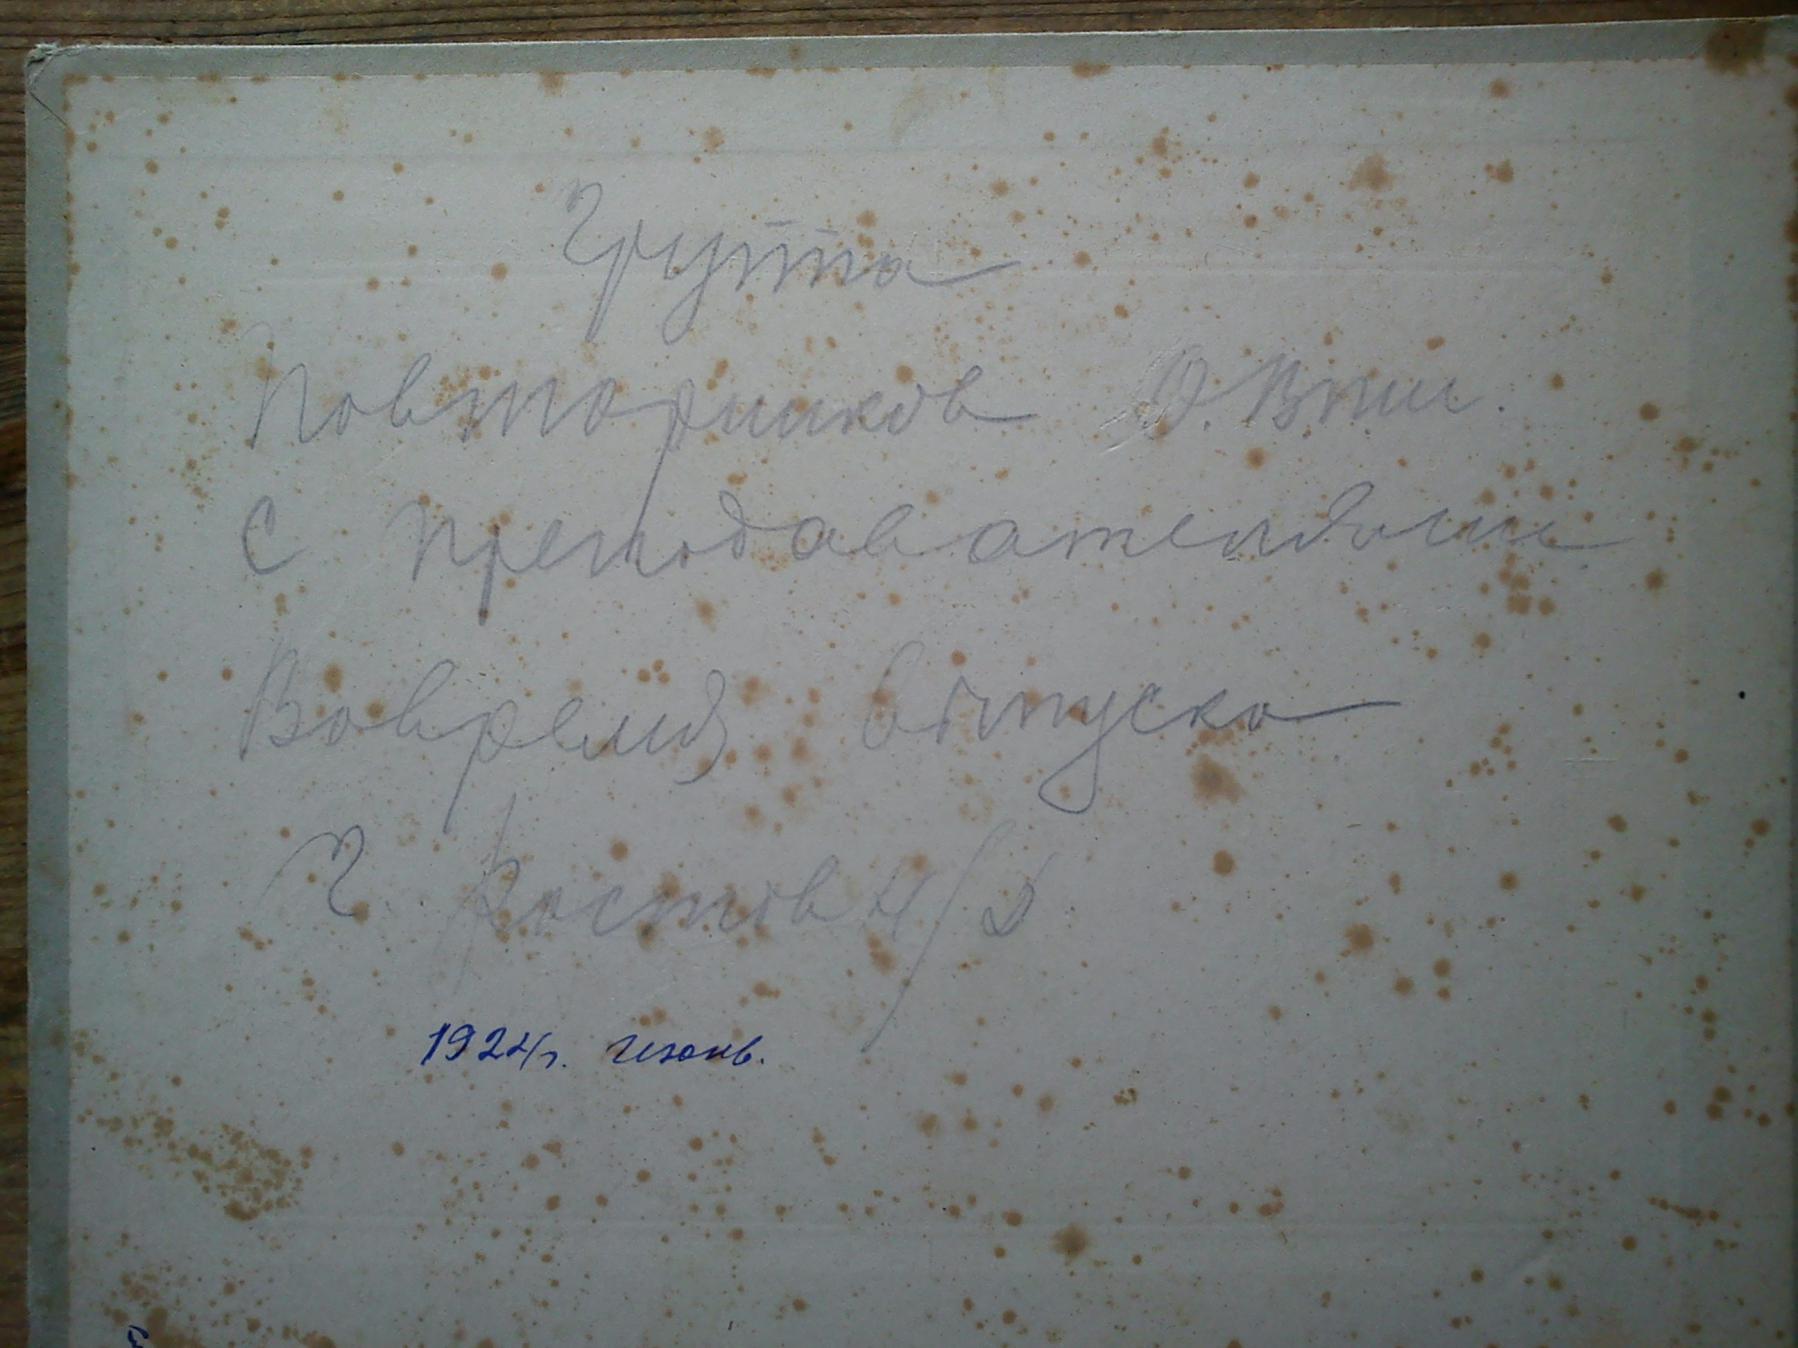 Группа
Повторников О. Впш.
с преподавателями
Вовремя отпуска
г. Ростов н/Д.
1924г. июнь.